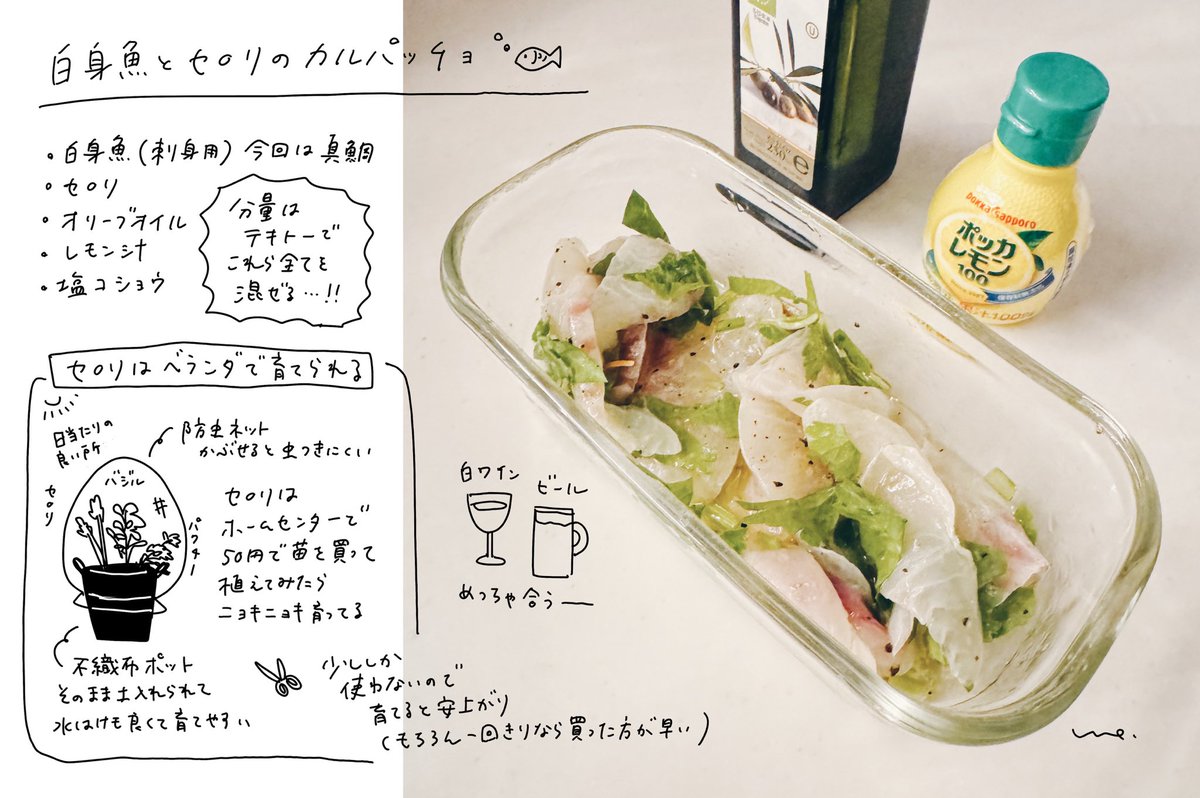 白身魚とセロリのカルパッチョ
・白身魚(刺身用) 今回は真鯛
・セロリ
・オリーブオイル
・レモン汁
・塩コショウ
分量は
テキトーで
これら全てを
混ぜる…!!
セロリはベランダで育てられる
日当たりの
良い所
防虫ネット
かぶせると虫つきにくい
セロリ
バジル
パクチー
セロリは
ホームセンターで
50円で苗を買って
植えてみたら
ニョキニョキ育ってる
不織布ポット
そのまま土入れられて
水はけも良くて育てやすい
少ししか
使わないので
育てると安上がり
(もちろん一回きりなら買った方が早い)
白ワイン
ビール
めっちゃ合うー
250 e
U
Pokka Sapporo
ポッカ
レモン
100
me.